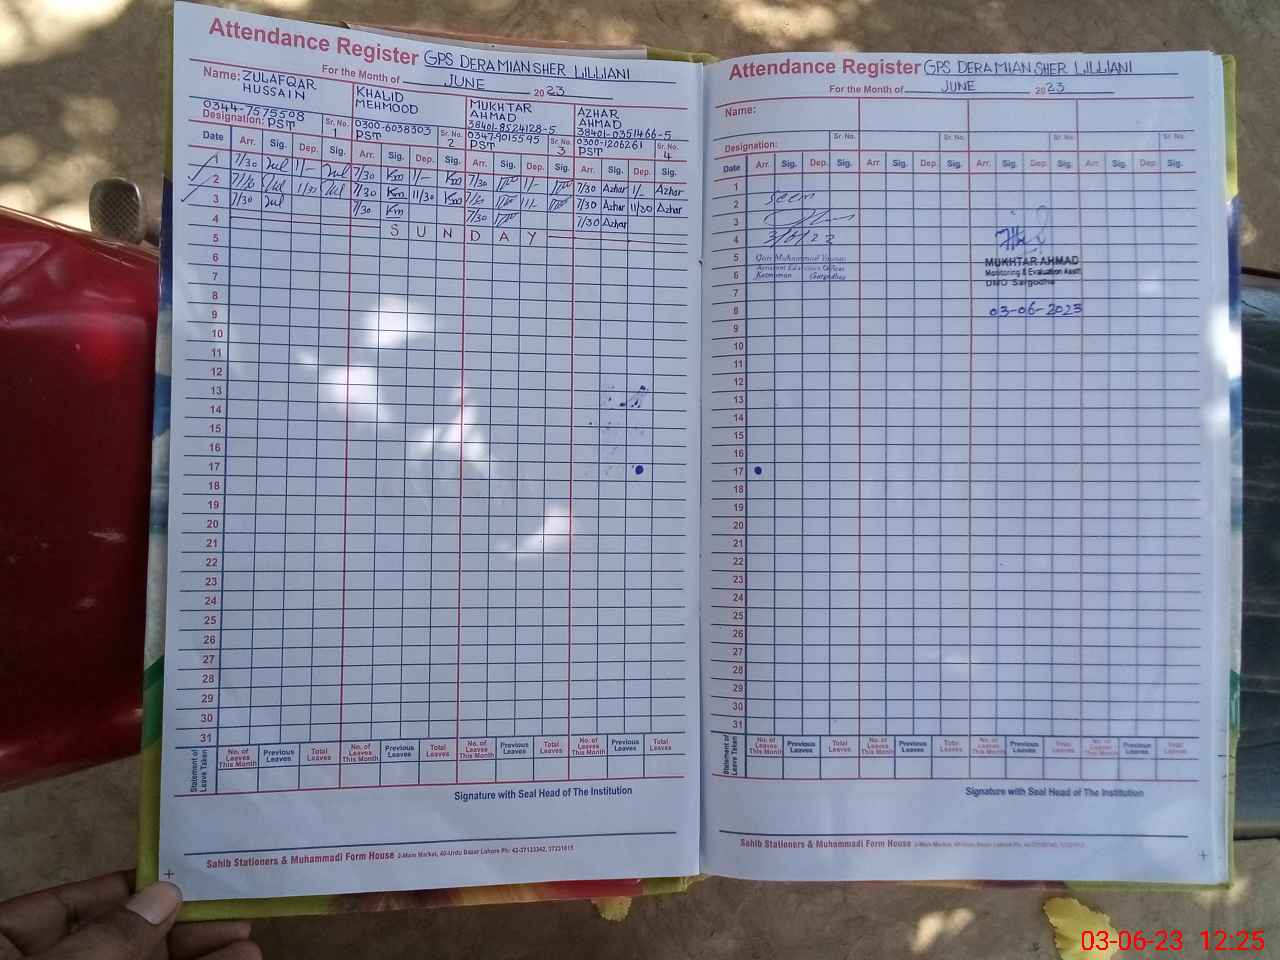 Attendance Register GPS DERA MIAN SHER LILLIANI
For the Month of JUNE 2023
Name: ZULAFQAR HUSSAIN
0344-7575508
Designation: PST Sr. No. 1
KHALID MEHMOOD
0300-6038303
PST Sr. No. 2
MUKHTAR AHMAD
38401-8524128-5
0347-9015595
PST Sr. No. 3
AZHAR AHMAD
38401-0351466-5
0300-1206261
PST Sr. No. 4
Date Arr. Sig. Dep. Sig. Arr. Sig. Dep. Sig. Arr. Sig. Dep. Sig. Arr. Sig. Dep. Sig.
1 7/30 11/- 7/30 Km 11/- Km 7/30 11/- 7/30 Azhar 11/- Azhar
2 7/30 11/30 7/30 Km 11/30 Km 7/30 11/- 7/30 Azhar 11/30 Azhar
3 7/30 7/30 Km 7/30 7/30 Azhar
4 S U N D A Y
5
6
7
8
9
10
11
12
13
14
15
16
17
18
19
20
21
22
23
24
25
26
27
28
29
30
31
Statement of Leave Taken
No. of Leaves This Month Previous Leaves Total Leaves No. of Leaves This Month Previous Leaves Total Leaves No. of Leaves This Month Previous Leaves Total Leaves No. of Leaves This Month Previous Leaves Total Leaves
Signature with Seal Head of The Institution
Sahib Stationers & Muhammadi Form House 2-Main Market, 40-Urdu Bazar Lahore Ph: 42-37123342, 37231615
Attendance Register GPS DERA MIAN SHER LILLIANI
For the Month of JUNE 2023
Name:
Sr. No. Sr. No. Sr. No. Sr. No.
Designation:
Date Arr. Sig. Dep. Sig. Arr. Sig. Dep. Sig. Arr. Sig. Dep. Sig. Arr. Sig. Dep. Sig.
1
2 Seen
3
4 3/6/23
5 Qari Muhammad
Assistant Education Officer
6
MUKHTAR AHMAD
Monitoring & Evaluation Asstt
DMO Sargodha
03-06-2023
7
8
9
10
11
12
13
14
15
16
17
18
19
20
21
22
23
24
25
26
27
28
29
30
31
Statement of Leave Taken
No. of Leaves This Month Previous Leaves Total Leaves No. of Leaves This Month Previous Leaves Total Leaves No. of Leaves This Month Previous Leaves Total Leaves No. of Leaves This Month Previous Leaves Total Leaves
Signature with Seal Head of The Institution
Sahib Stationers & Muhammadi Form House 2-Main Market, 40-Urdu Bazar Lahore Ph: 42-37123342, 37231615
03-06-23 12:25